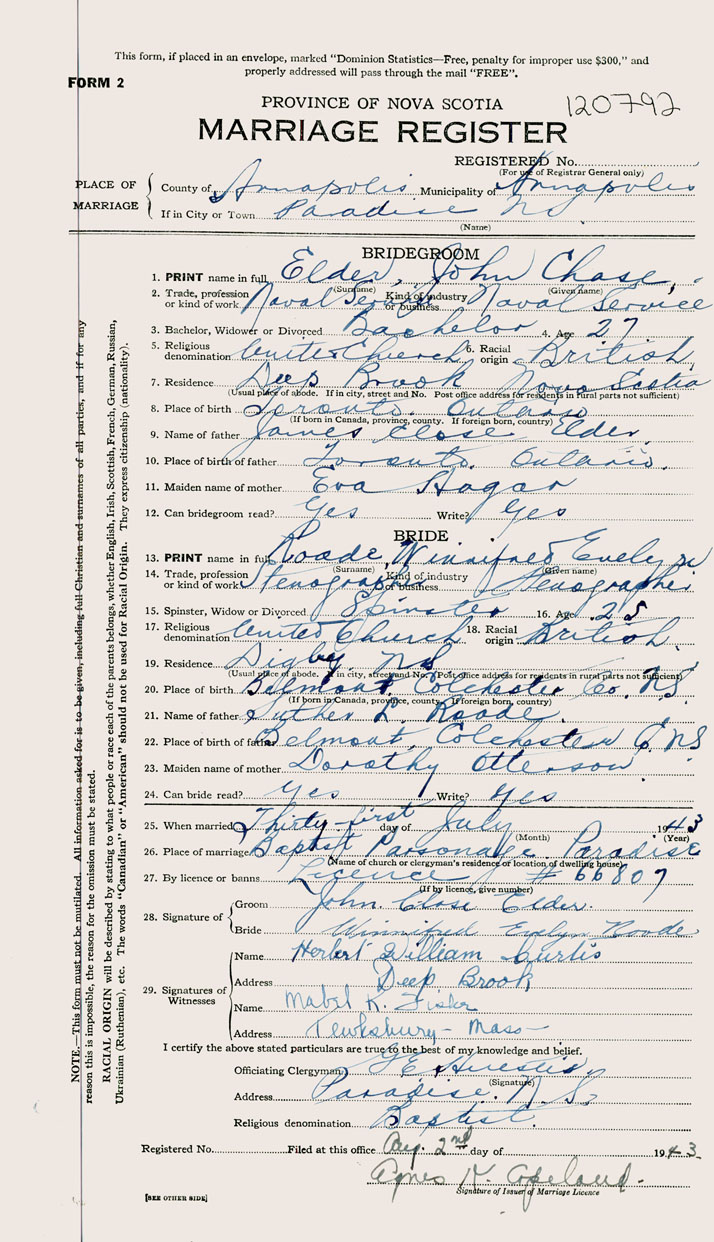 This form, if placed in an envelope, marked "Dominion Statistics—Free, penalty for improper use $300," and
properly addressed will pass through the mail "FREE".
FORM 2
PROVINCE OF NOVA SCOTIA
120792
MARRIAGE REGISTER
REGISTERED No.
(For use of Registrar General only)
PLACE OF MARRIAGE
County of Annapolis Municipality of Annapolis
If in City or Town Paradise NS
(Name)
BRIDEGROOM
1. PRINT name in full Elder, John Chase,
(Surname) (Given name)
2. Trade, profession or kind of work Naval Service Kind of industry or business Naval Service
3. Bachelor, Widower or Divorced Bachelor 4. Age 27
5. Religious denomination United Church 6. Racial origin British
7. Residence Deep Brook Nova Scotia
(Usual place of abode. If in city, street and No. Post office address for residents in rural parts not sufficient)
8. Place of birth Toronto. Ontario
(If born in Canada, province, county. If foreign born, country)
9. Name of father James Close Elder
10. Place of birth of father Toronto. Ontario.
11. Maiden name of mother Eva Hagar
12. Can bridegroom read? Yes Write? Yes
BRIDE
13. PRINT name in full Roode, Winnifred Evelyn
(Surname) (Given name)
14. Trade, profession or kind of work Stenographer Kind of industry or business Stenographer
15. Spinster, Widow or Divorced Spinster 16. Age 25
17. Religious denomination United Church 18. Racial origin British
19. Residence Digby NS
(Usual place of abode. If in city, street and No. Post office address for residents in rural parts not sufficient)
20. Place of birth Belmont, Colchester Co. NS
(If born in Canada, province, county. If foreign born, country)
21. Name of father Luther L. Roode
22. Place of birth of father Belmont, Colchester Co NS
23. Maiden name of mother Dorothy Otterson
24. Can bride read? Yes Write? Yes
25. When married Thirty-first day of July 1943
(Month) (Year)
26. Place of marriage Baptist Parsonage Paradise
(Name of church or clergyman's residence or location of dwelling house)
27. By licence or banns Licence # 66807
(If by licence, give number)
28. Signature of
Groom John Close Elder.
Bride Winnifred Evelyn Roode
29. Signatures of Witnesses
Name Herbert William Curtis
Address Deep Brook
Name Mabel K. Fisher
Address Tewksbury - Mass
I certify the above stated particulars are true to the best of my knowledge and belief.
Officiating Clergyman
(Signature)
Address Paradise. N.S.
Religious denomination Baptist
Registered No. Filed at this office Aug. 2nd day of 1943
Agnes Copeland.
Signature of Issuer of Marriage Licence
[SEE OTHER SIDE]
NOTE.—This form must not be mutilated. All information asked for is to be given, including full Christian and surnames of all parties, and if for any
reason this is impossible, the reason for the omission must be stated.
RACIAL ORIGIN will be described by stating to what people or race each of the parents belongs, whether English, Irish, Scottish, French, German, Russian,
Ukrainian (Ruthenian), etc. The words "Canadian" or "American" should not be used for Racial Origin. They express citizenship (nationality).